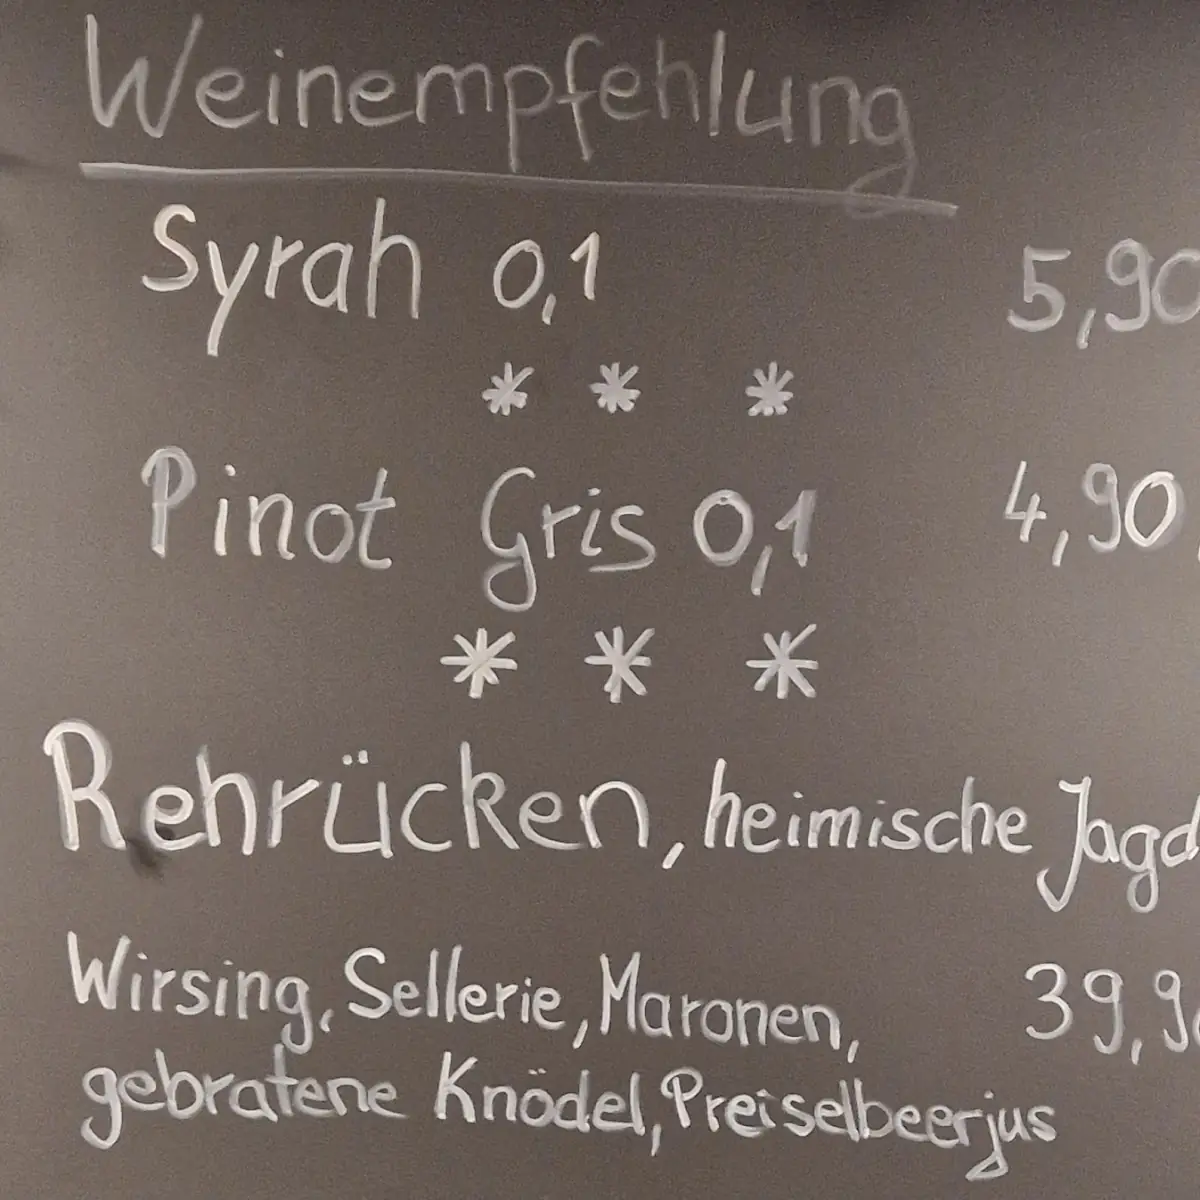 Weinempfehlung
Syrah 0,1 5,90
* * *
Pinot Gris 0,1 4,90
* * *
Rehrücken, heimische Jagd
Wirsing, Sellerie, Maronen, 39,90
gebratene Knödel, Preiselbeerjus